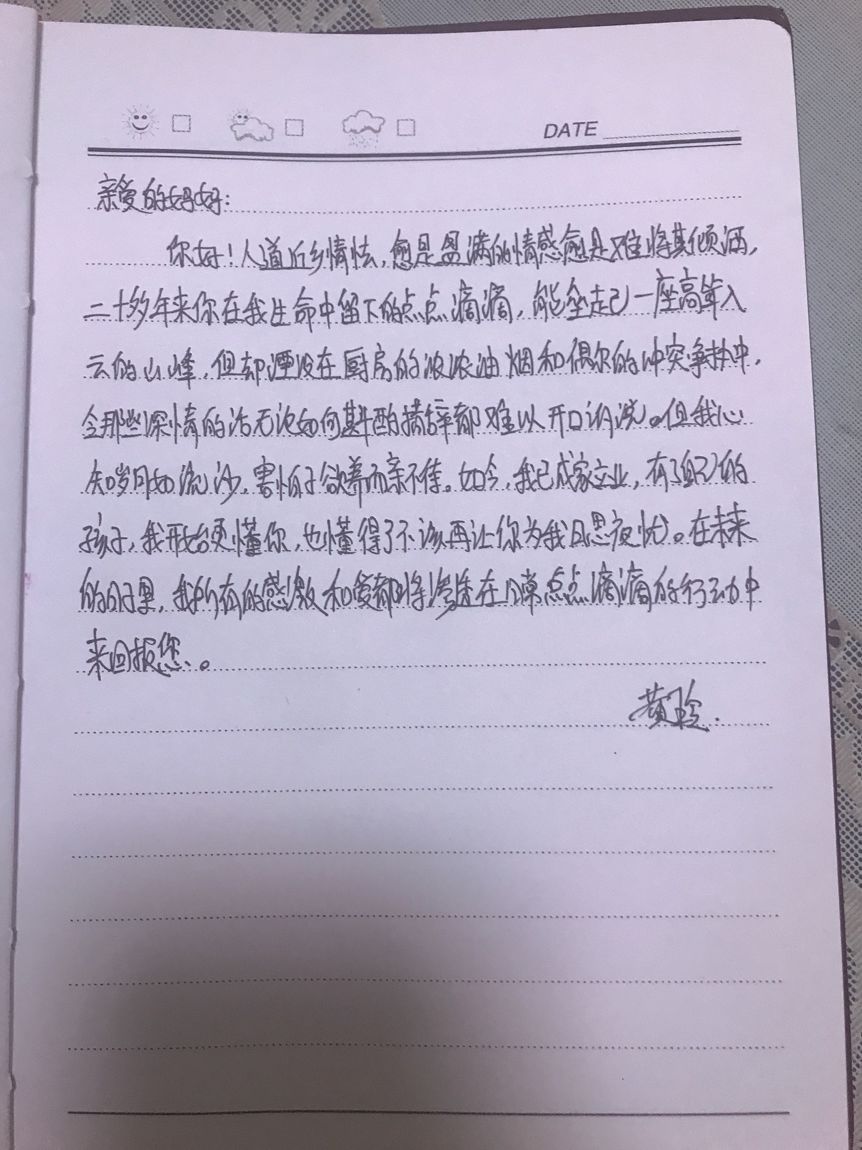 DATE
亲爱的妈妈:
你好!人道近乡情怯,愈是盈满的情感愈是难将其倾洒,
二十多年来你在我生命中留下的点点滴滴,能垒起一座高耸入
云的山峰,但却湮没在厨房的浓浓油烟和偶尔的冲突争执中,
令那些深情的话无论如何斟酌措辞都难以开口诉说。但我心
知岁月如流沙,害怕子欲养而亲不待。如今,我已成家立业,有了自己的
孩子,我开始更懂你,也懂得了不该再让你为我日思夜忧。在未来
的日子里,我所有的感激和爱都将渗透在日常点点滴滴的行动中
来回报您。
黄玲.